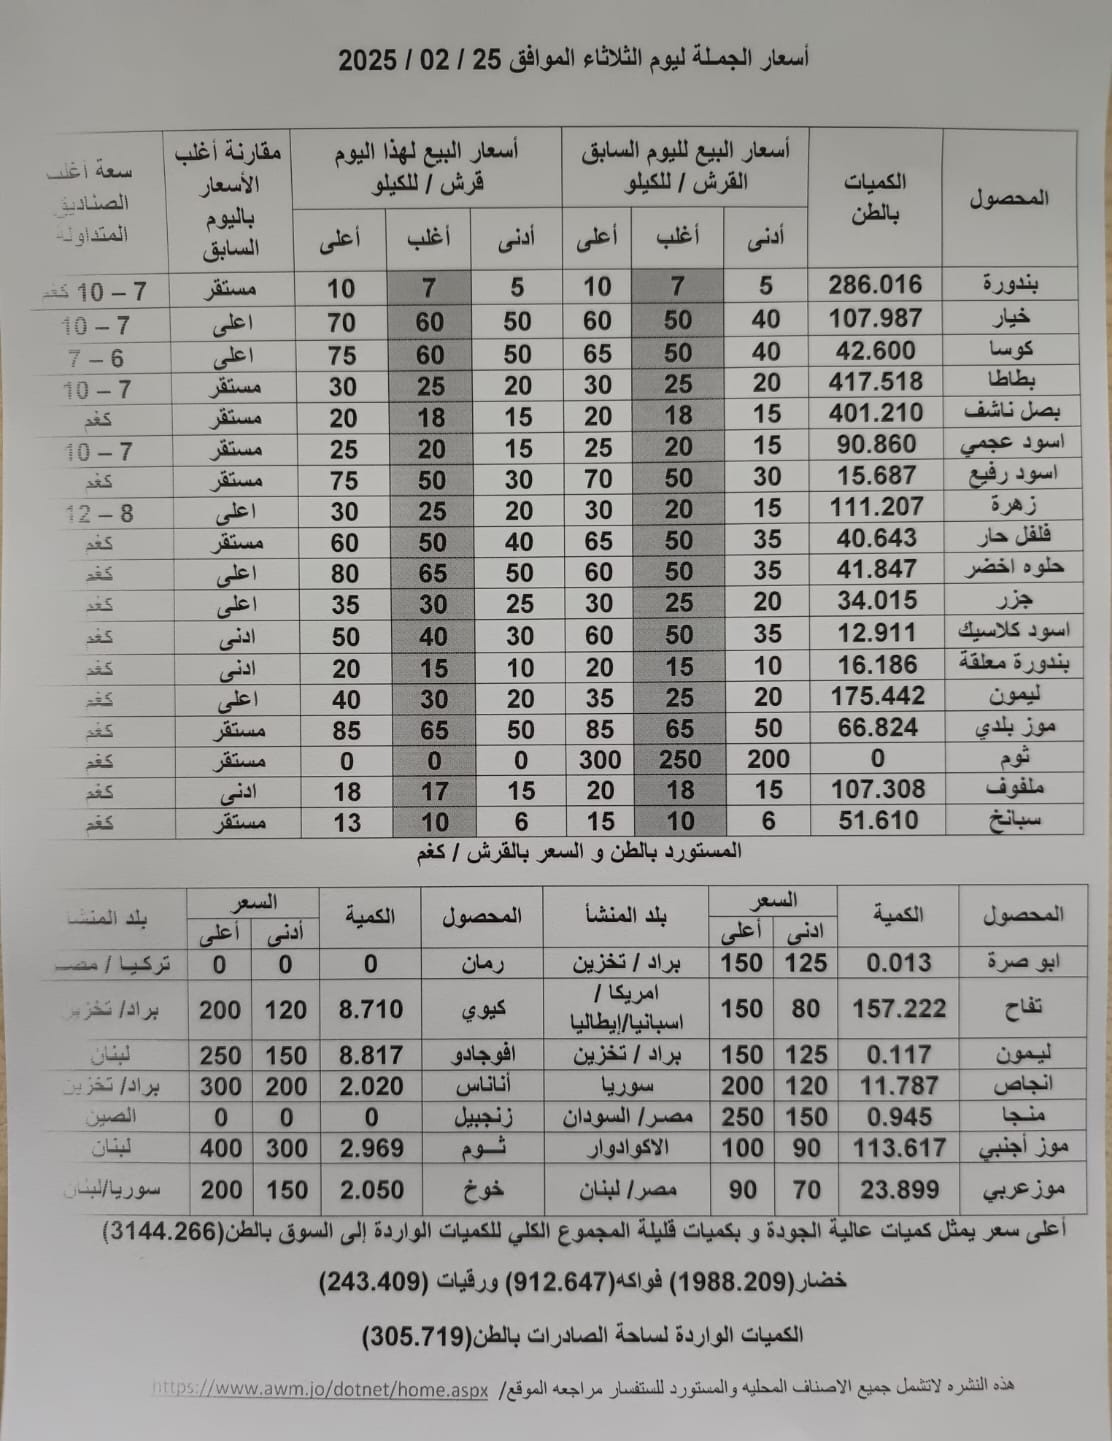 أسعار الجملة ليوم الثلاثاء الموافق 25 / 02 / 2025
المحصول الكميات بالطن أسعار البيع لليوم السابق القرش / للكيلو أسعار البيع لهذا اليوم قرش / للكيلو مقارنة أغلب الأسعار باليوم السابق سعة أغلب الصناديق المتداولة
أدنى أغلب أعلى أدنى أغلب أعلى
بندورة 286.016 5 7 10 5 7 10 مستقر 7 – 10 كغم
خيار 107.987 40 50 60 50 60 70 اعلى 7 – 10
كوسا 42.600 40 50 65 50 60 75 اعلى 6 – 7
بطاطا 417.518 20 25 30 20 25 30 مستقر 7 – 10
بصل ناشف 401.210 15 18 20 15 18 20 مستقر كغم
اسود عجمي 90.860 15 20 25 15 20 25 مستقر 7 – 10
اسود رفيع 15.687 30 50 70 30 50 75 مستقر كغم
زهرة 111.207 15 20 30 20 25 30 اعلى 8 – 12
فلفل حار 40.643 35 50 65 40 50 60 مستقر كغم
حلوه اخضر 41.847 35 50 60 50 65 80 اعلى كغم
جزر 34.015 20 25 30 25 30 35 اعلى كغم
اسود كلاسيك 12.911 35 50 60 30 40 50 ادنى كغم
بندورة معلقة 16.186 10 15 20 10 15 20 ادنى كغم
ليمون 175.442 20 25 35 20 30 40 اعلى كغم
موز بلدي 66.824 50 65 85 50 65 85 مستقر كغم
ثوم 0 200 250 300 0 0 0 مستقر كغم
ملفوف 107.308 15 18 20 15 17 18 ادنى كغم
سبانخ 51.610 6 10 15 6 10 13 مستقر كغم
المستورد بالطن و السعر بالقرش / كغم
المحصول الكمية السعر بلد المنشأ المحصول الكمية السعر بلد المنشأ
ادنى أعلى أدنى أعلى
ابو صرة 0.013 125 150 براد / تخزين رمان 0 0 0 تركيا / مصر
تفاح 157.222 80 150 امريكا / اسبانيا/إيطاليا كيوي 8.710 120 200 براد/ تخزين
ليمون 0.117 125 150 براد / تخزين افوجادو 8.817 150 250 لبنان
انجاص 11.787 120 200 سوريا أناناس 2.020 200 300 براد/ تخزين
منجا 0.945 150 250 مصر/ السودان زنجبيل 0 0 0 الصين
موز أجنبي 113.617 90 100 الاكوادوار ثـــوم 2.969 300 400 لبنان
موز عربي 23.899 70 90 مصر/ لبنان خوخ 2.050 150 200 سوريا/لبنان
أعلى سعر يمثل كميات عالية الجودة و بكميات قليلة المجموع الكلي للكميات الواردة إلى السوق بالطن(3144.266)
خضار(1988.209) فواكه(912.647) ورقيات (243.409)
الكميات الواردة لساحة الصادرات بالطن(305.719)
هذه النشره لاتشمل جميع الاصناف المحليه والمستورد للاستفسار مراجعه الموقع/ https://www.awm.jo/dotnet/home.aspx